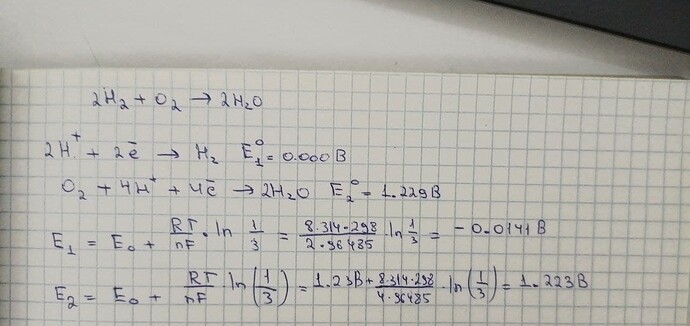 2H₂ + O₂ → 2H₂O
2H⁺ + 2ē → H₂ E₁⁰ = 0.000 В
O₂ + 4H⁺ + 4ē → 2H₂O E₂⁰ = 1.229 В
E₁ = E₀ + RT/nF · ln 1/3 = 8.314·298/2·96485 · ln 1/3 = -0.0141 В
E₂ = E₀ + RT/nF · ln(1/3) = 1.23 В + 8.314·298/4·96485 · ln(1/3) = 1.223 В